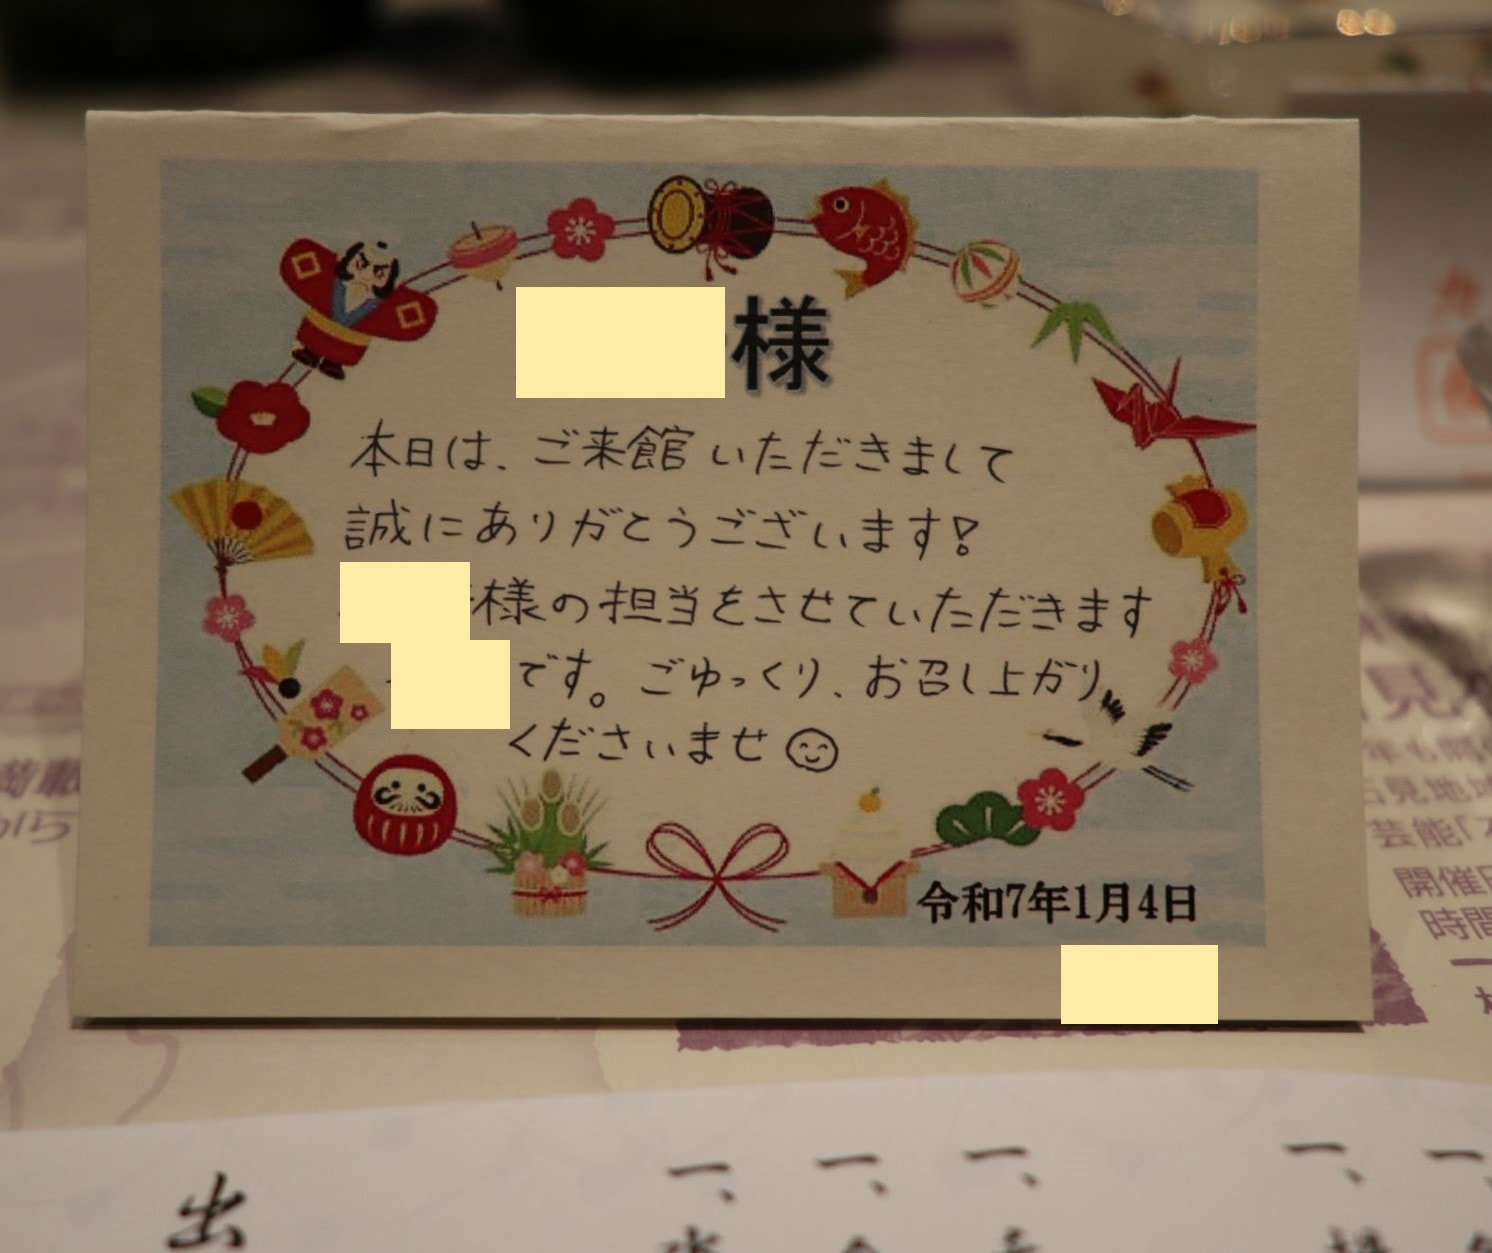 様
本日は、ご来館いただきまして
誠にありがとうございます!
様の担当をさせていただきます
です。ごゆっくり、お召し上がり
くださいませ
令和7年1月4日
満載
開催日
時間
芸能「
石見地
出
一、
一、
一、
一、
一、